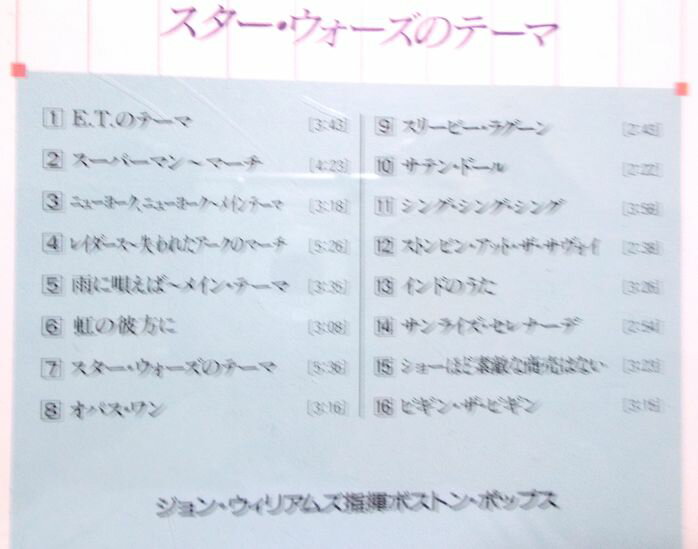 スター・ウォーズのテーマ
1 E.T.のテーマ [3:43]
2 スーパーマン～マーチ [4:23]
3 ニューヨーク、ニューヨーク～メインテーマ [3:18]
4 レイダース～失われたアークのマーチ [5:26]
5 雨に唄えば～メイン・テーマ [3:35]
6 虹の彼方に [3:08]
7 スター・ウォーズのテーマ [5:36]
8 オパス・ワン [3:16]
9 スリーピー・ラグーン [2:43]
10 サテン・ドール [2:22]
11 シング・シング・シング [3:56]
12 ストンピン・アット・ザ・サヴォイ [2:38]
13 インドのうた [3:26]
14 サンライズ・セレナーデ [2:54]
15 ショーほど素敵な商売はない [3:23]
16 ビギン・ザ・ビギン [3:15]
ジョン・ウィリアムズ指揮ボストン・ポップス